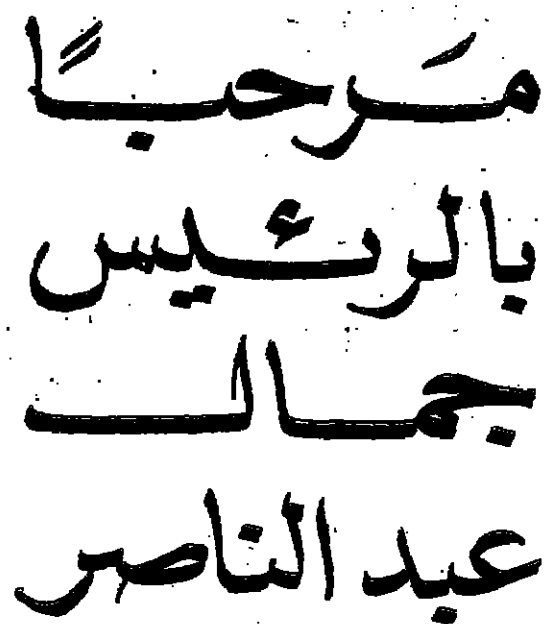 مَرحبًا
بالرئيس
جمال
عبد الناصر